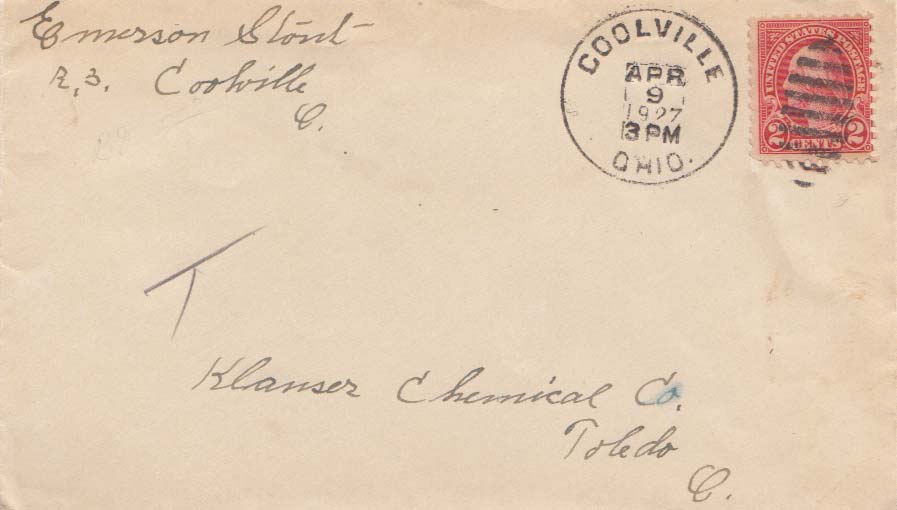 Emerson Stout
R, 3. Coolville
O.
COOLVILLE
APR
9
1927
3 PM
OHIO.
UNITED STATES POSTAGE
2 CENTS 2
Klanser Chemical Co.
Toledo
O.